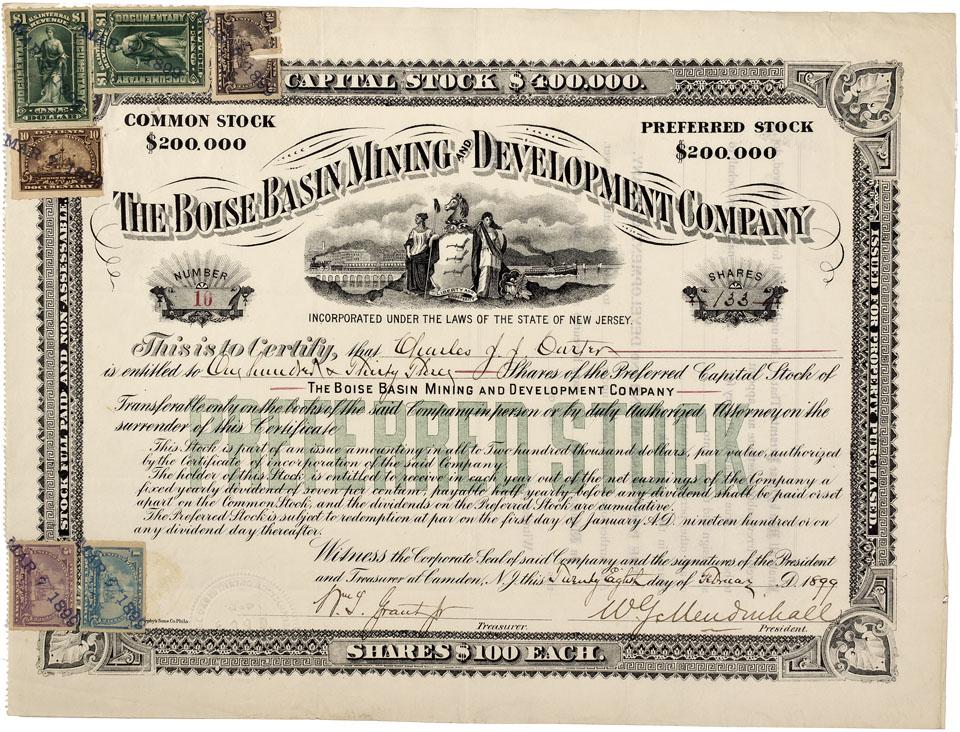 $1 U.S. INTERNAL REVENUE $1
DOCUMENTARY
ONE DOLLAR
$1 DOCUMENTARY
10 CENTS 10
DOCUMENTARY
CAPITAL STOCK $400.000.
COMMON STOCK
$200.000
PREFERRED STOCK
$200.000
THE BOISE BASIN MINING AND DEVELOPMENT COMPANY
NUMBER
10
SHARES
133
INCORPORATED UNDER THE LAWS OF THE STATE OF NEW JERSEY.
This is to Certify, that Charles J. J.
is entitled to One hundred & Thirty Three Shares of the Preferred Capital Stock of
THE BOISE BASIN MINING AND DEVELOPMENT COMPANY
Transferable only on the books of the said Company in person or by duly Authorized Attorney on the
surrender of this Certificate
PREFERRED STOCK
This Stock is part of an issue amounting in all to Two hundred thousand dollars, par value, authorized
by the Certificate of incorporation of the said Company
The holder of this Stock is entitled to receive in each year out of the net earnings of the Company a
fixed yearly dividend of seven per centum, payable half yearly before any dividend shall be paid or set
apart on the Common Stock, and the dividends on the Preferred Stock are cumulative.
The Preferred Stock is subject to redemption at par on the first day of January A.D. nineteen hundred or on
any dividend day thereafter.
Witness the Corporate Seal of said Company and the signatures of the President
and Treasurer at Camden, N.J. this Twenty Eight day of February D. 1899
Wm S. Grant Jr
Treasurer.
W G Mendinhall
President.
Murphy's Sons Co. Phila.
SHARES $100 EACH.
STOCK FULL PAID AND NON-ASSESSABLE
ISSUED FOR PROPERTY PURCHASED.